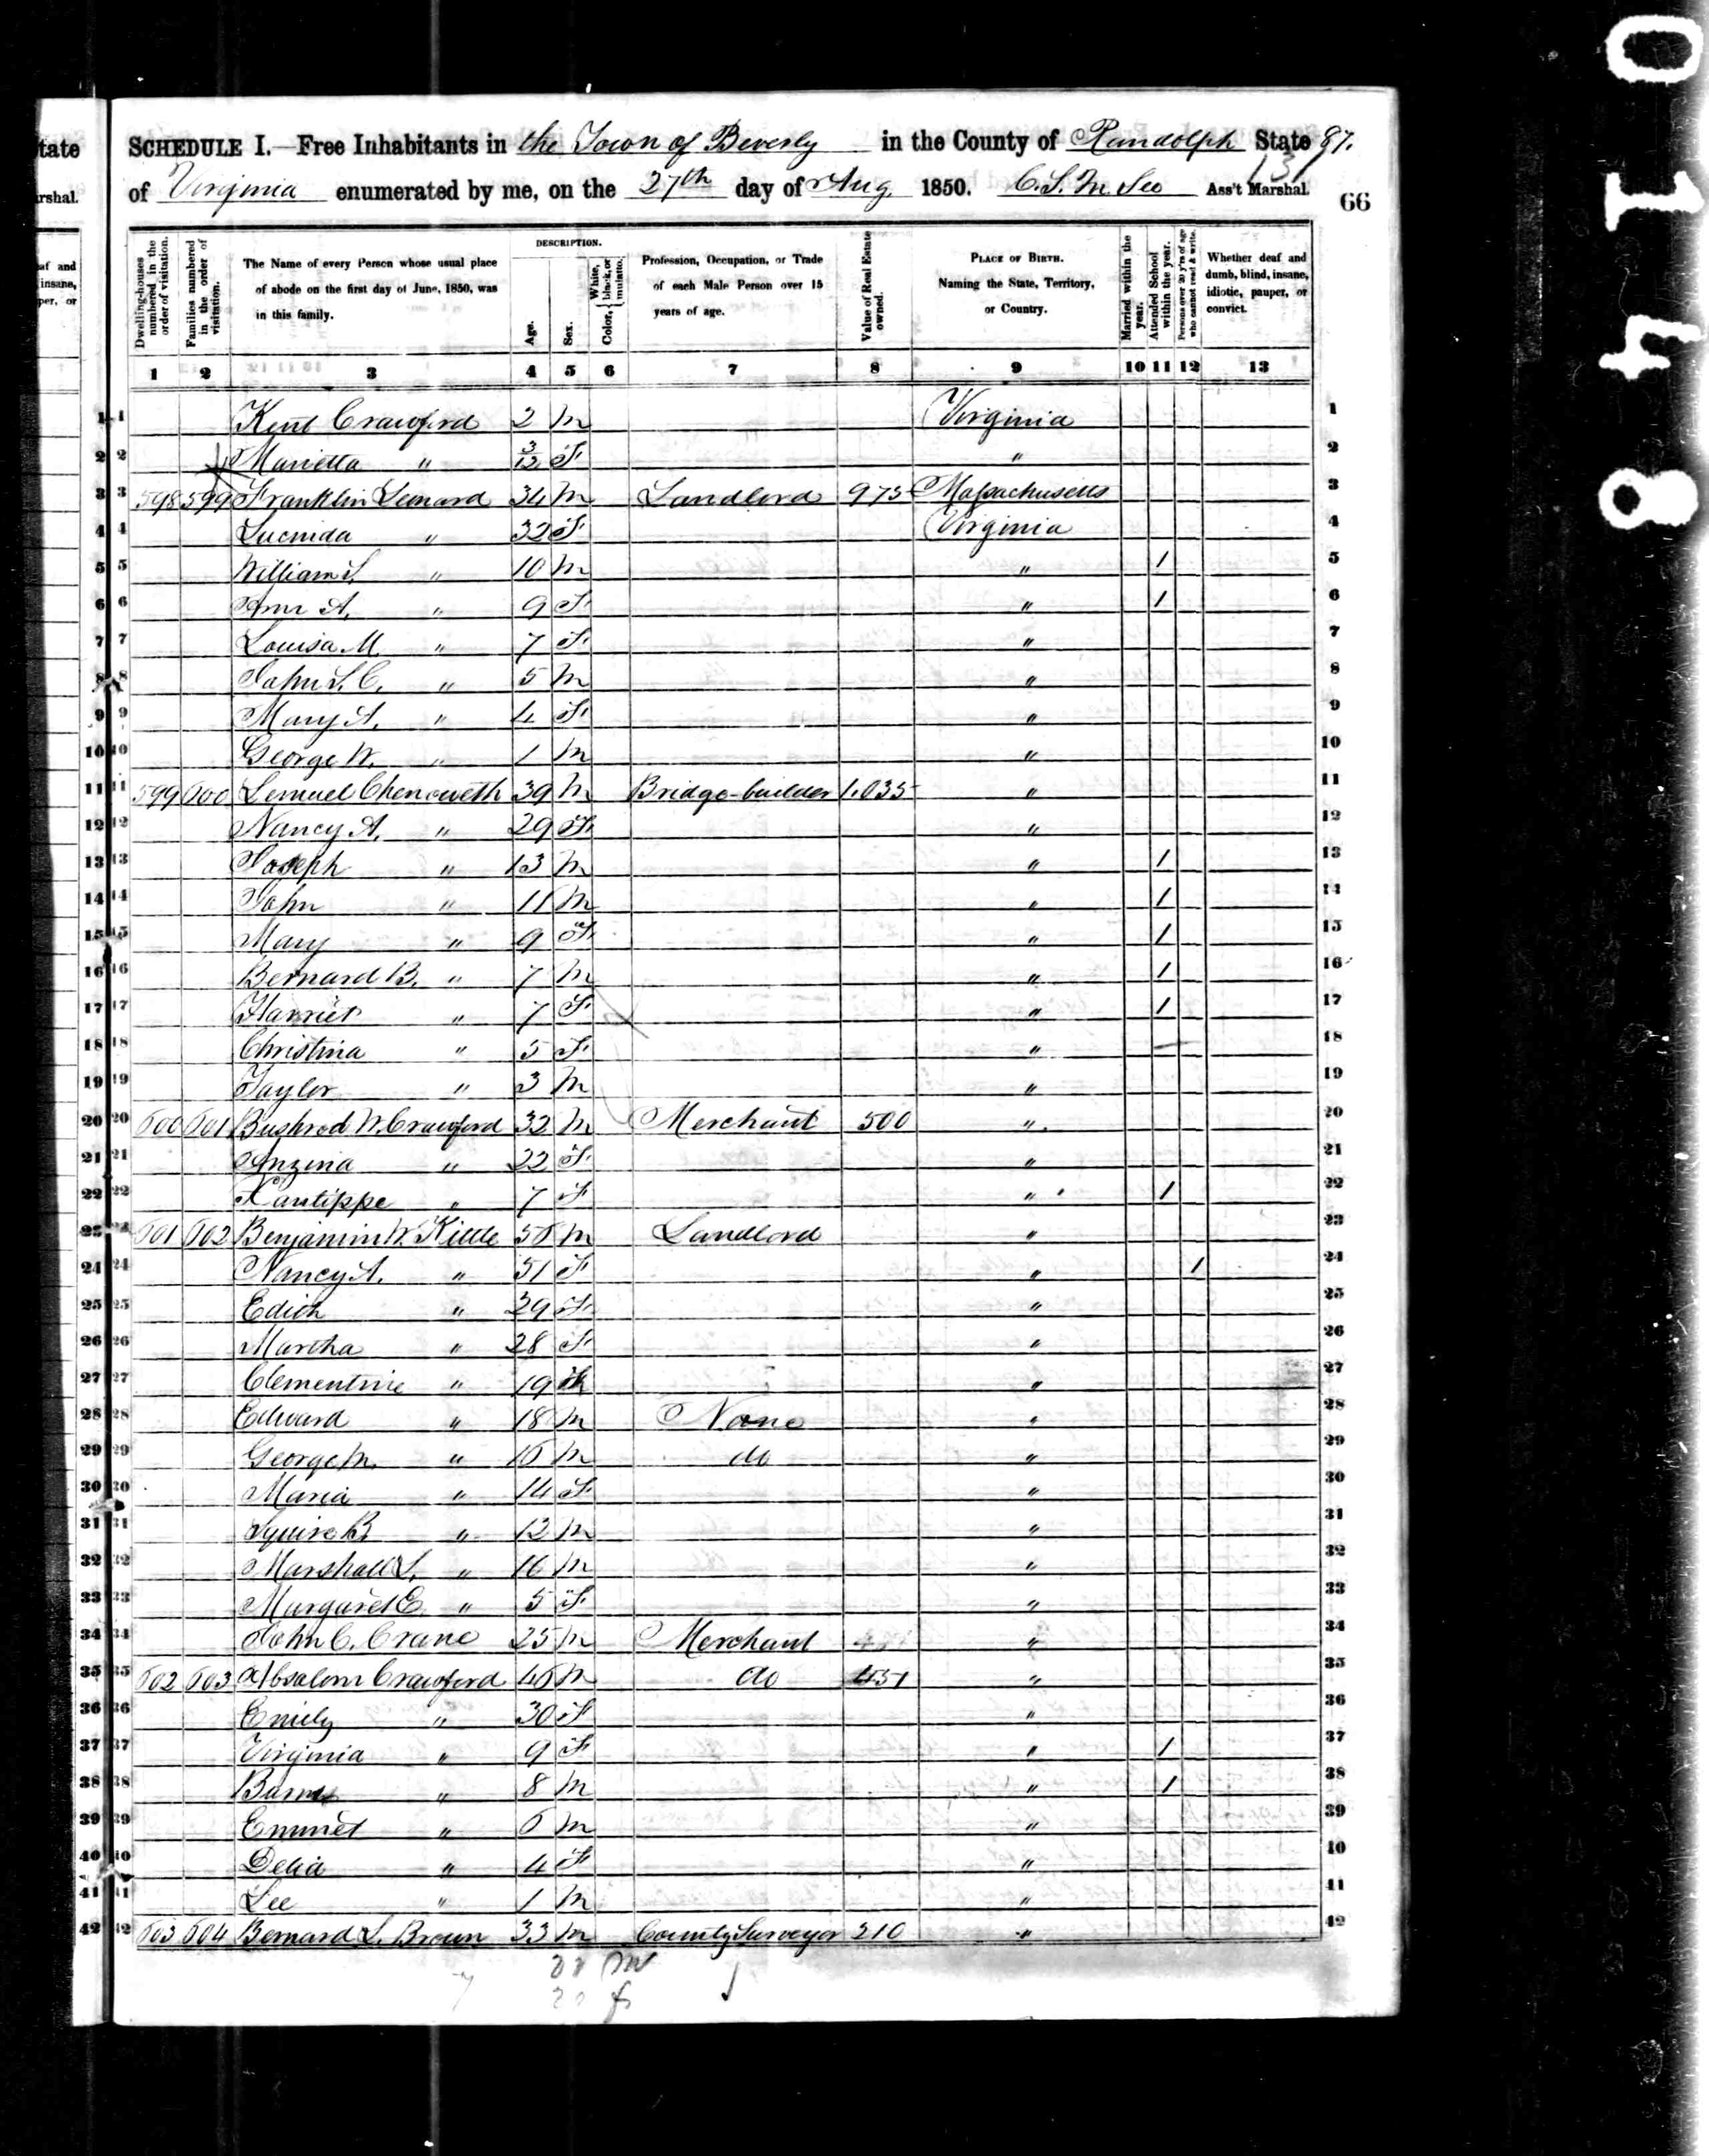 tate
rshal.
af and
insane,
per, or
SCHEDULE I.—Free Inhabitants in the Town of Beverly in the County of Randolph State 87.
of Virginia enumerated by me, on the 27th day of Aug 1850. Ass't Marshal.
66
0148
Dwelling-houses numbered in the order of visitation.
Families numbered in the order of visitation.
The Name of every Person whose usual place of abode on the first day of June, 1850, was in this family.
DESCRIPTION.
Age.
Sex.
Color, { White, black, or mulatto.
Profession, Occupation, or Trade of each Male Person over 15 years of age.
Value of Real Estate owned.
PLACE OF BIRTH. Naming the State, Territory, or Country.
Married within the year.
Attended School within the year.
Persons over 20 y'rs of age who cannot read & write.
Whether deaf and dumb, blind, insane, idiotic, pauper, or convict.
1 2 3 4 5 6 7 8 9 10 11 12 13
1 1 Kent Crawford 2 M Virginia 1
2 2 Marietta " 3/12 F " 2
3 3 598 599 Franklin Leonard 34 M Landlord 975 Massachusetts 3
4 4 Lucinda " 32 F Virginia 4
5 5 William S. " 10 M " 1 5
6 6 Ann A. " 9 F " 1 6
7 7 Louisa M. " 7 F " 7
8 8 John S. C. " 5 M " 8
9 9 Mary A. " 4 F " 9
10 10 George W. " 1 M " 10
11 11 599 600 Lemuel Chenoweth 39 M Bridge-builder 1.035 " 11
12 12 Nancy A. " 29 F " 12
13 13 Joseph " 13 M " 1 13
14 14 John " 11 M " 1 14
15 15 Mary " 9 F " 1 15
16 16 Bernard B. " 7 M " 1 16
17 17 Harriet " 7 F " 1 17
18 18 Christina " 5 F " 18
19 19 Taylor " 3 M " 19
20 20 600 601 Bushrod W. Crawford 32 M Merchant 500 " 20
21 21 Anzina " 22 F " 21
22 22 Xantippe " 7 F " 1 22
23 23 601 602 Benjamin W. Kittle 56 M Landlord " 23
24 24 Nancy A. " 51 F " 1 24
25 25 Edith " 29 F " 25
26 26 Martha " 28 F " 26
27 27 Clementine " 19 F " 27
28 28 Edward " 18 M None " 28
29 29 George M. " 16 M do " 29
30 30 Maria " 14 F " 30
31 31 Squire B. " 12 M " 31
32 32 Marshall S. " M " 32
33 33 Margaret E. " 5 F " 33
34 34 John C. Crane 25 M Merchant " 34
35 35 602 603 Absalom Crawford 46 M do 451 " 35
36 36 Emily " 30 F " 36
37 37 Virginia " 9 F " 1 37
38 38 " 8 M " 1 38
39 39 Emmet " 6 M " 39
40 40 Delia " 4 F " 40
41 41 Lee " 1 M " 41
42 42 603 604 Bernard L. Brown 33 M County Surveyor 210 " 42